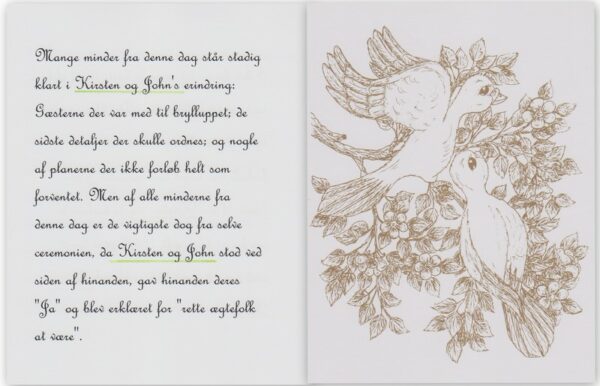 Mange minder fra denne dag står stadig
klart i Kirsten og John's erindring:
Gæsterne der var med til brylluppet; de
sidste detaljer der skulle ordnes; og nogle
af planerne der ikke forløb helt som
forventet. Men af alle minderne fra
denne dag er de vigtigste dog fra selve
ceremonien, da Kirsten og John stod ved
siden af hinanden, gav hinanden deres
"Ja" og blev erklæret for "rette ægtefolk
at være".